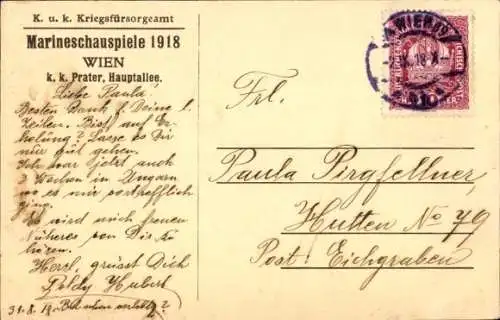 K. u. k. Kriegsfürsorgeamt
Marineschauspiele 1918
WIEN
k. k. Prater, Hauptallee.
Liebe Paula!
Besten Dank f. Deine l.
Zeilen. Bist auf Er-
holung? Lasse es Dir
nur gut gehen.
Ich war jetzt auch
3 Wochen in Ungarn
wo es mir vortrefflich
ging.
Es wird mich freuen
Näheres von Dir zu
hören.
Herzl. grüsst Dich
Poldy Hubert
31. 8. 18.
Frl.
Paula Pirgfellner,
Hutten No 79
Post Eichgraben
WIEN